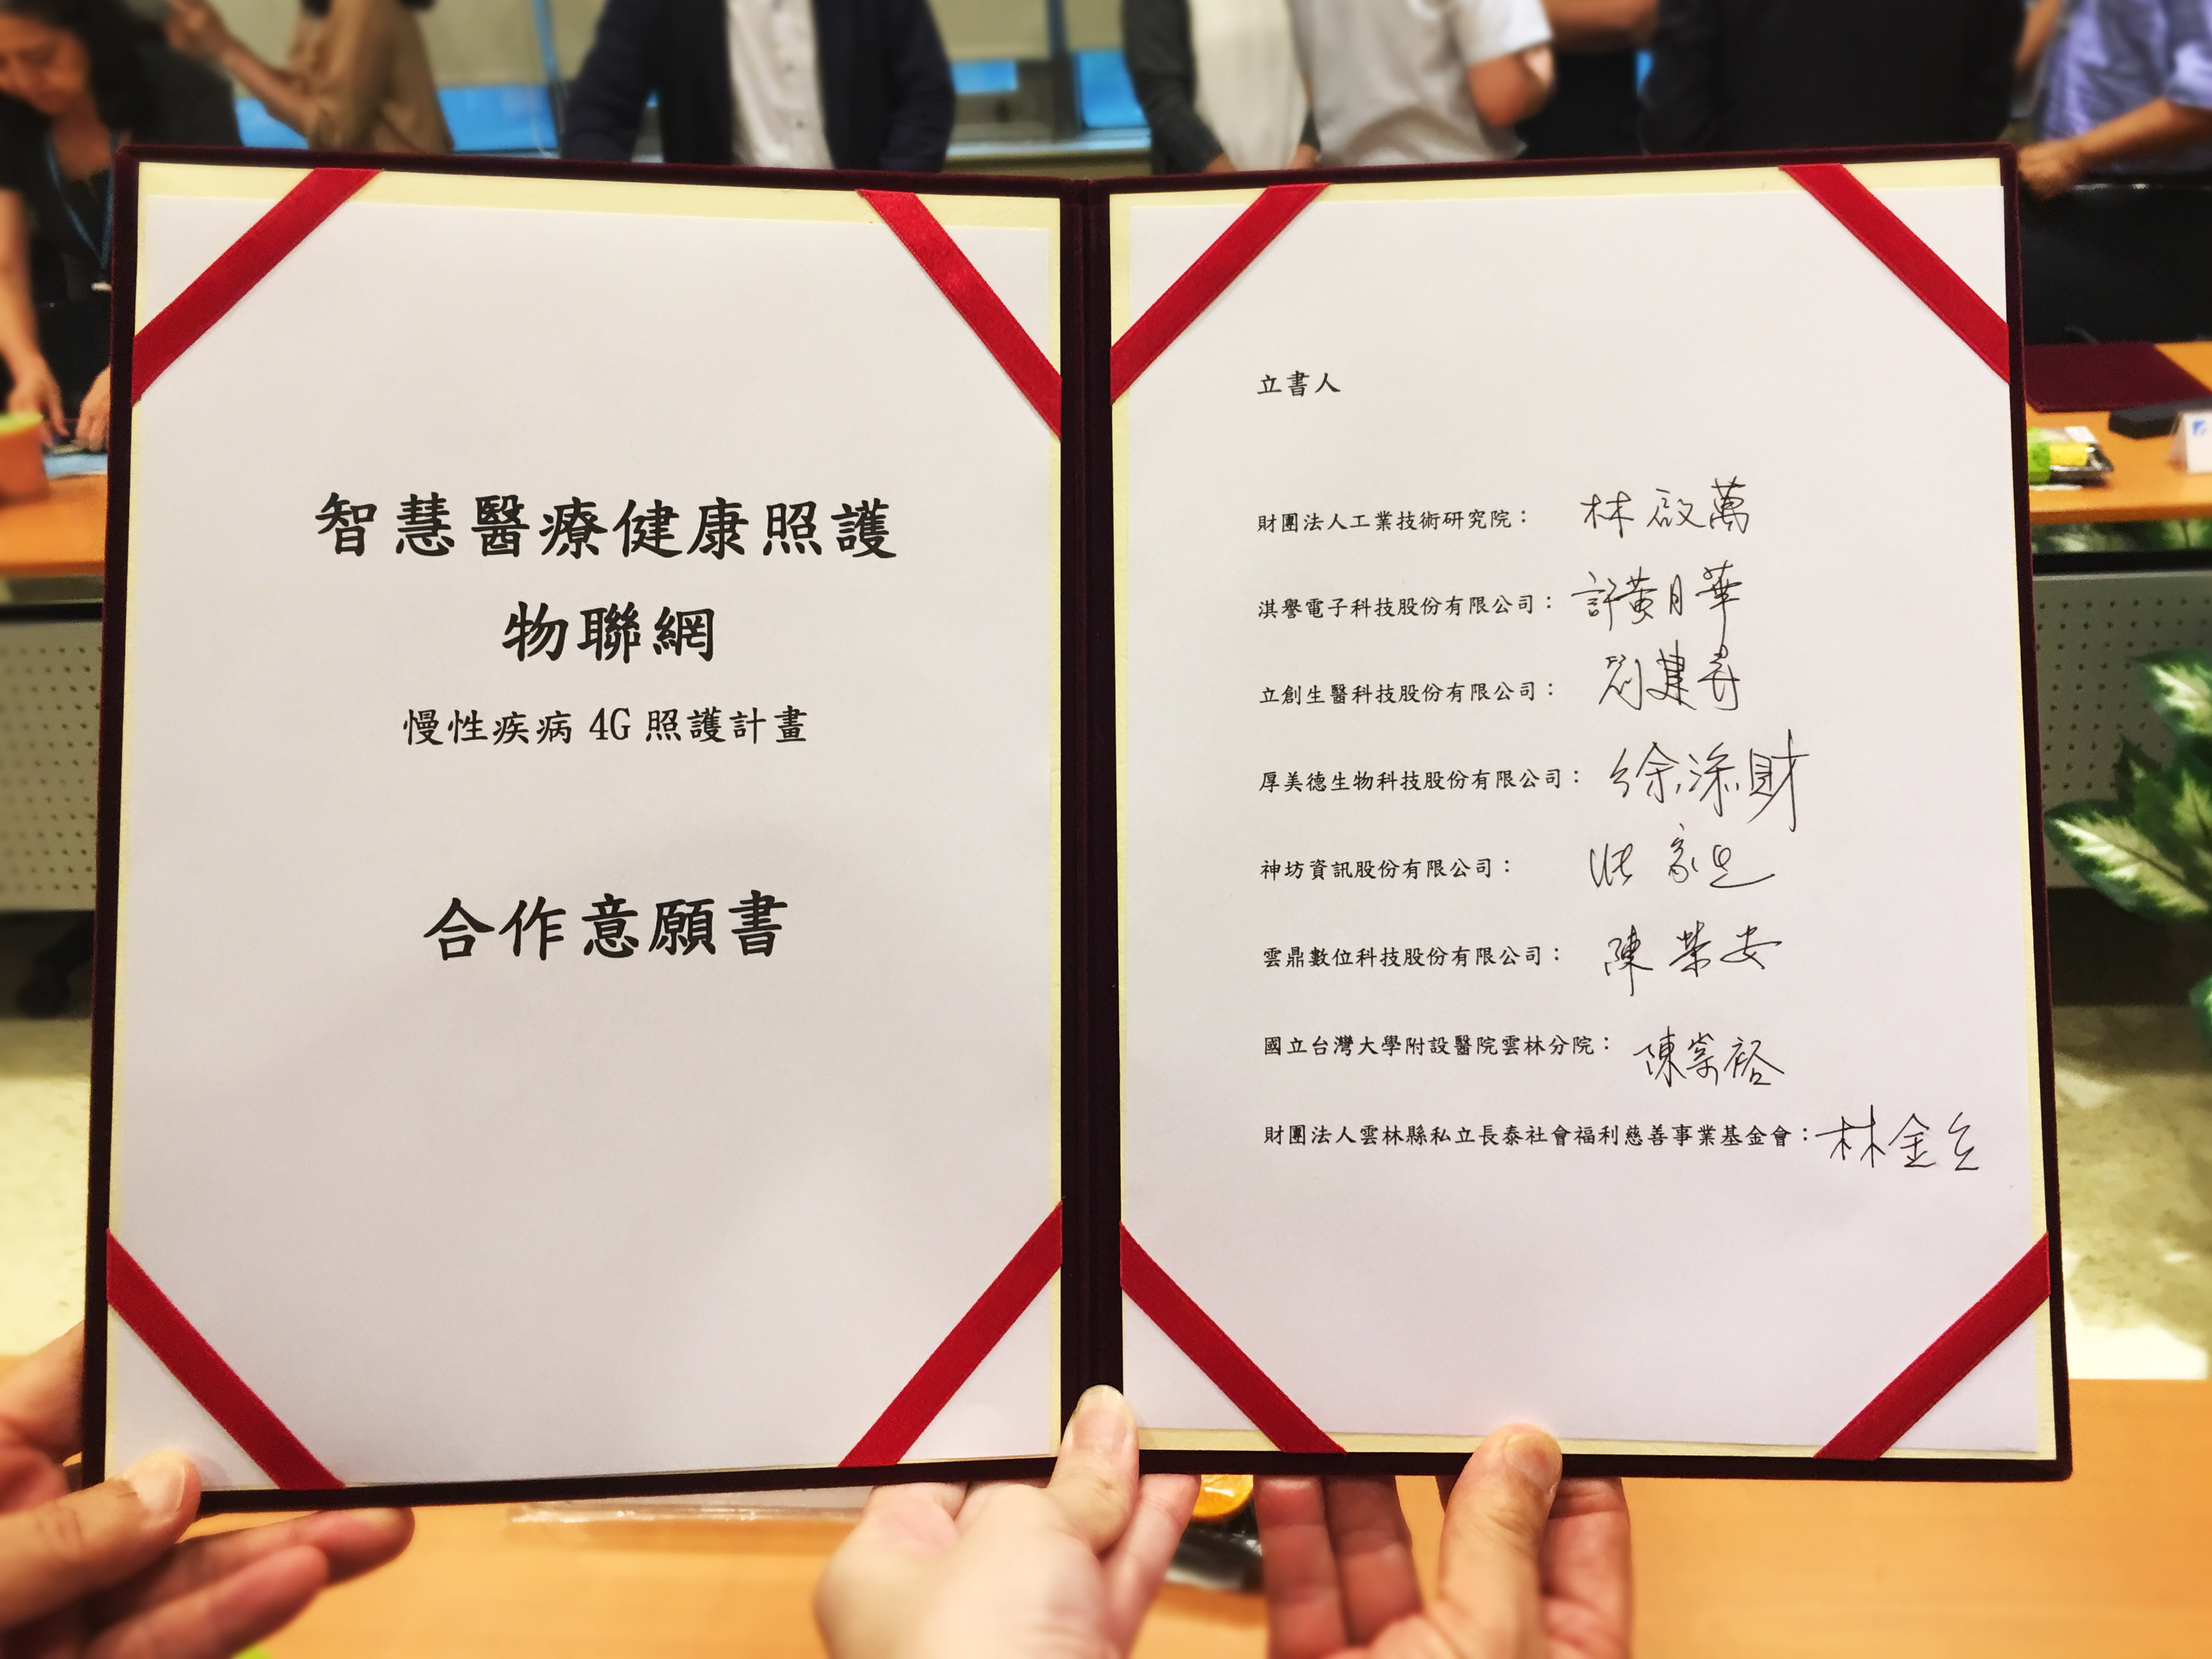 智慧醫療健康照護
物聯網
慢性疾病 4G 照護計畫
合作意願書
立書人
財團法人工業技術研究院： 林啟萬
淇譽電子科技股份有限公司： 許黃月華
立創生醫科技股份有限公司： 劉建
厚美德生物科技股份有限公司： 徐深財
神坊資訊股份有限公司：
雲鼎數位科技股份有限公司： 陳榮安
國立台灣大學附設醫院雲林分院： 陳崇裕
財團法人雲林縣私立長泰社會福利慈善事業基金會： 林金立